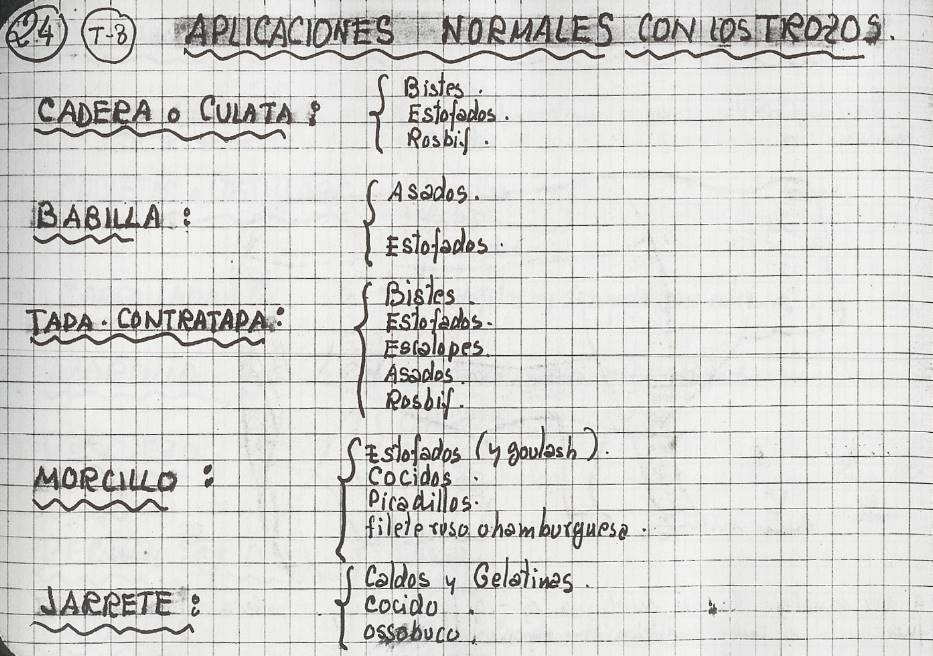 24 T-8 APLICACIONES NORMALES CON LOS TROZOS.
CADERA o CULATA :
Bistes.
Estofados.
Rosbif.
BABILLA :
Asados.
Estofados.
TAPA. CONTRATAPA :
Bistes.
Estofados.
Escalopes.
Asados.
Rosbif.
MORCILLO :
Estofados (y goulash).
Cocidos.
Picadillos.
filete ruso o hamburguesa.
JARRETE :
Caldos y Gelatinas.
Cocido.
ossobuco.